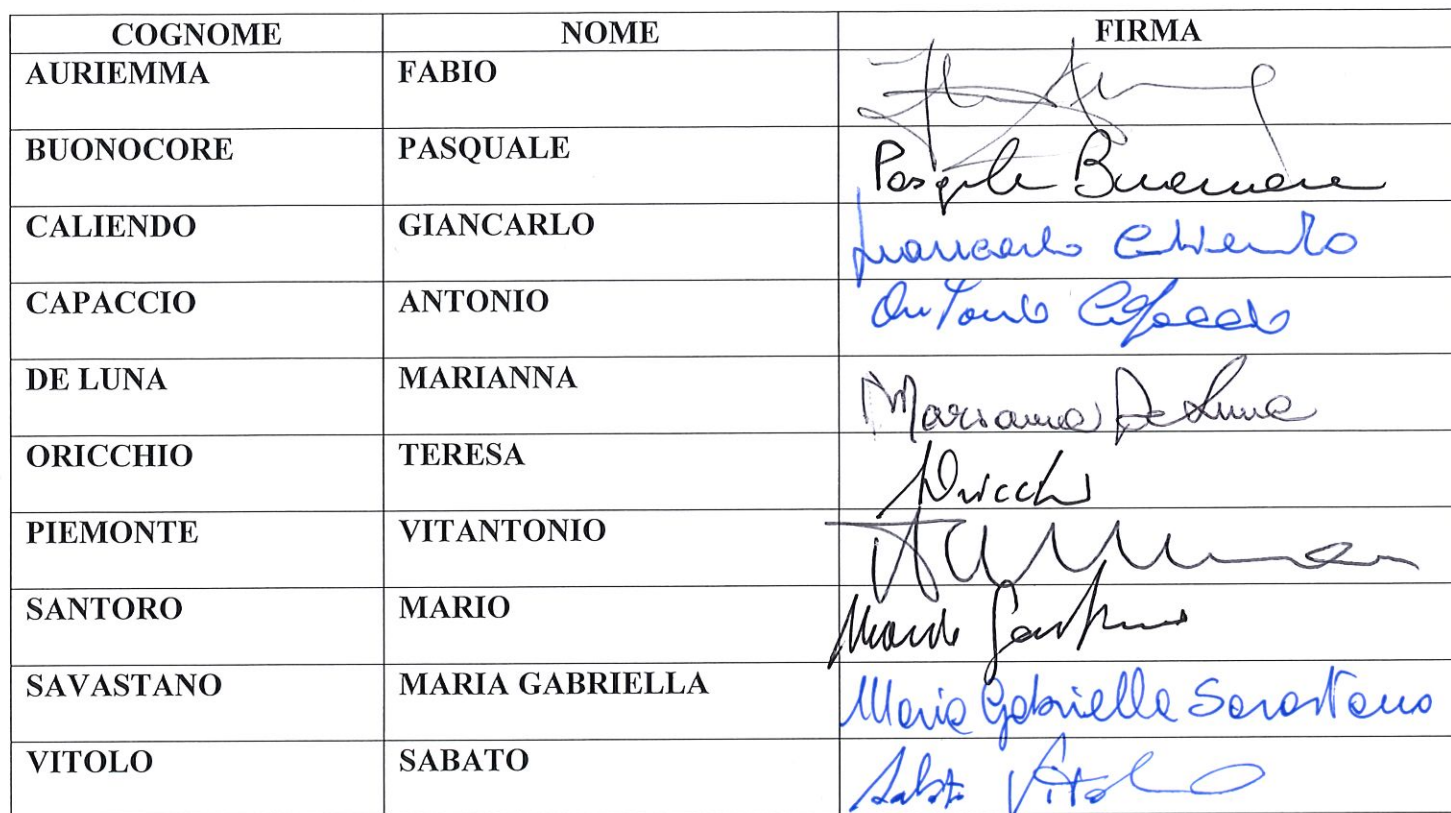 COGNOME NOME FIRMA
AURIEMMA FABIO
BUONOCORE PASQUALE Pasquale Buonocore
CALIENDO GIANCARLO Giancarlo Caliendo
CAPACCIO ANTONIO Antonio Capaccio
DE LUNA MARIANNA Marianna De Luna
ORICCHIO TERESA Oricchio
PIEMONTE VITANTONIO
SANTORO MARIO Mario Santoro
SAVASTANO MARIA GABRIELLA Maria Gabriella Savastano
VITOLO SABATO Sabato Vitolo